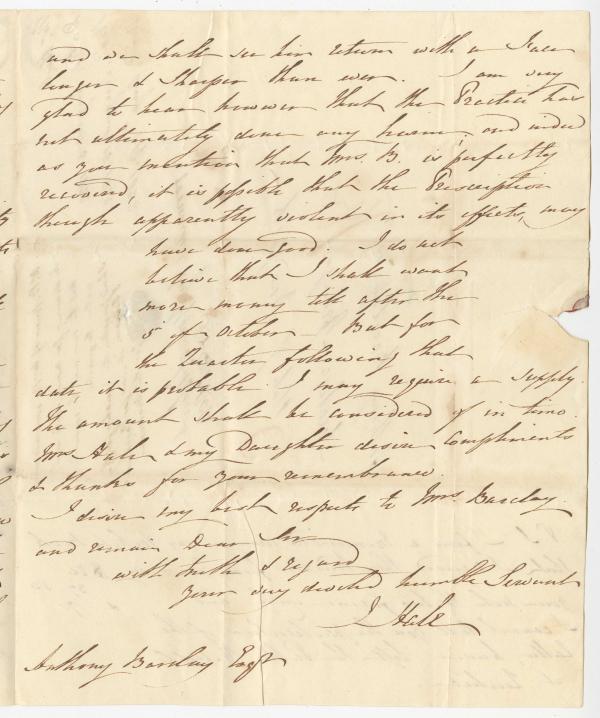 and we shall see him return with a Face
longer & sharper than ever. I am very
glad to hear however that the Practice has
not ultimately done any harm, and indeed
as you mention that Mrs. B. is perfectly
recovered, it is possible that the Prescription
though apparently violent in its effects, may
have done good. I do not
believe that I shall want
more money till after the
5 of October - But for
the Quarter following that
date, it is probable I may require a supply.
The amount shall be considered of in time.
Mrs Hale & my Daughter desire Compliments
& thanks for your remembrance.
I desire my best respects to Mrs. Barclay.
and remain Dear Sir
with truth & regard
your very devoted humble Servant
J Hale
Anthony Barclay Esqr